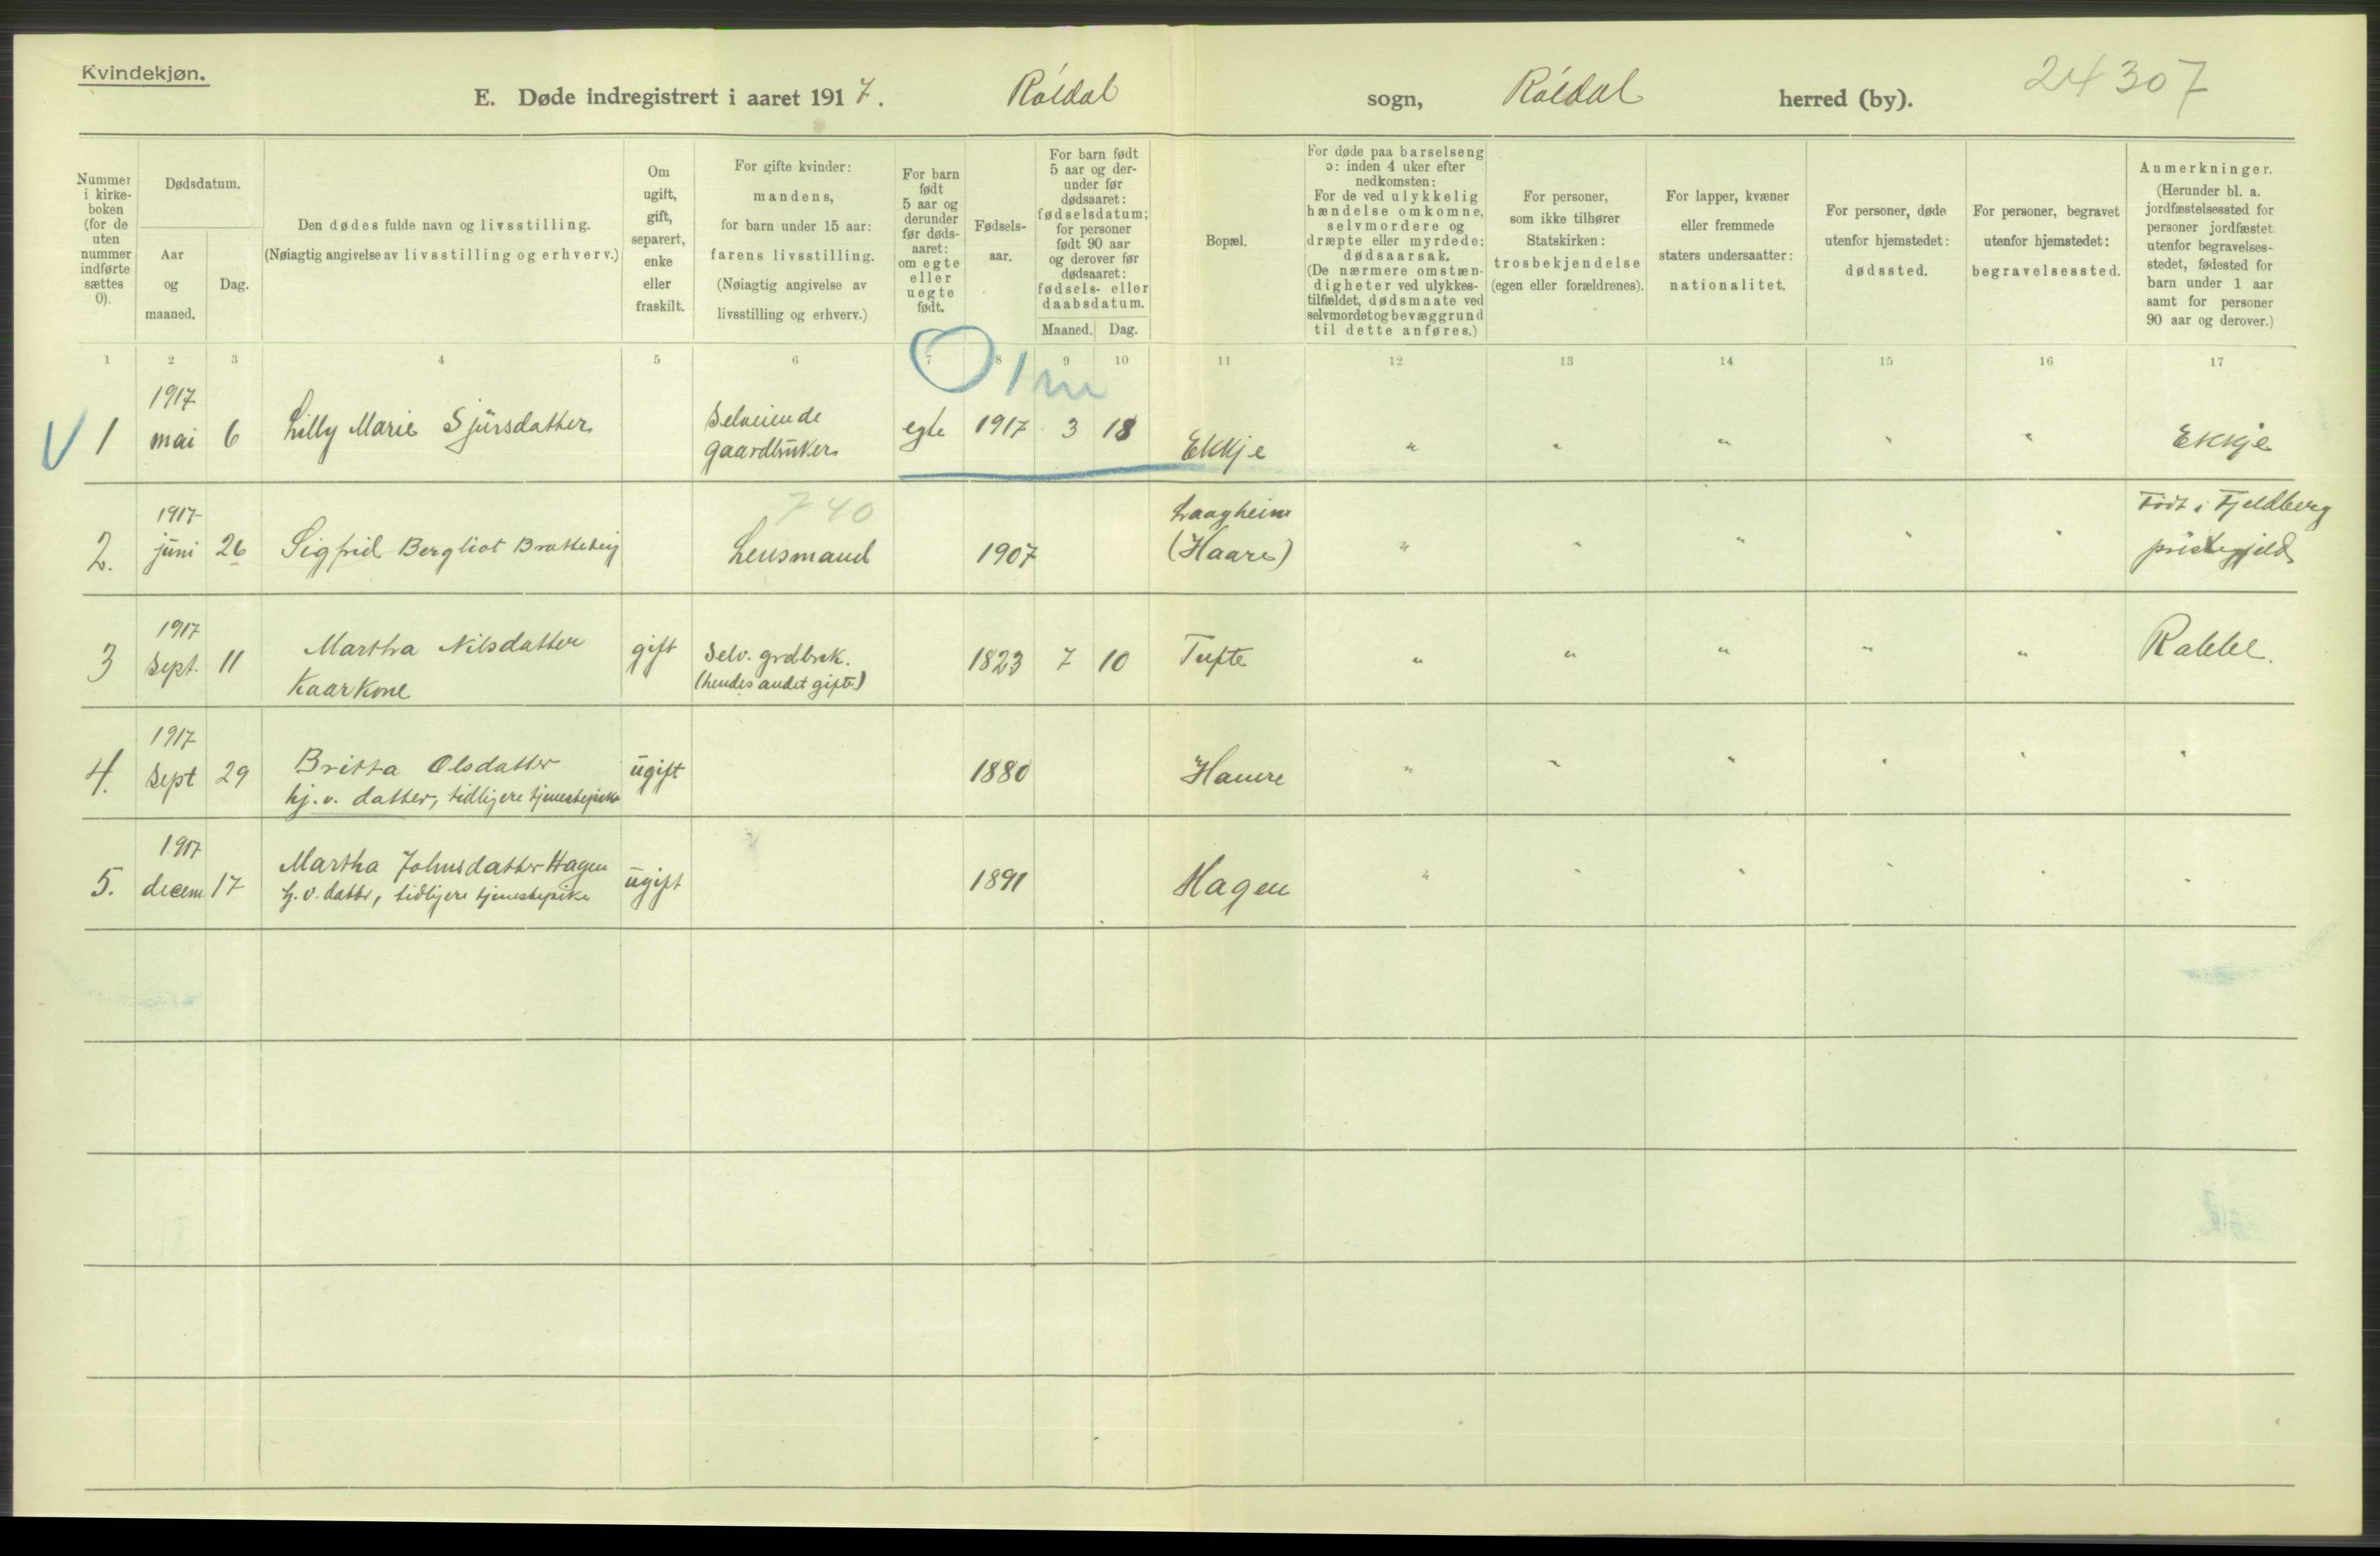 Kvindekjøn.
E. Døde indregistrert i aaret 1917. Röldal sogn, Röldal herred (by). 24307
Nummer i kirke-boken (for de uten nummer indførte sættes 0).
Dødsdatum.
Aar og maaned.
Dag.
Den dødes fulde navn og livsstilling.
(Nøiagtig angivelse av livsstilling og erhverv.)
Om ugift, gift, separert, enke eller fraskilt.
For gifte kvinder:
mandens,
for barn under 15 aar:
farens livsstilling.
(Nøiagtig angivelse av
livsstilling og erhverv.)
For barn født 5 aar og derunder før døds-aaret: om egte eller uegte født.
Fødsels-aar.
For barn født 5 aar og der-under før dødsaaret: fødselsdatum; for personer født 90 aar og derover før dødsaaret: fødsels- eller daabsdatum.
Maaned. Dag.
Bopæl.
For døde paa barselseng
ɔ: inden 4 uker efter
nedkomsten:
For de ved ulykkelig
hændelse omkomne,
selvmordere og
dræpte eller myrdede:
dødsaarsak.
(De nærmere omstæn-
digheter ved ulykkes-
tilfældet, dødsmaate ved
selvmordet og bevæggrund
til dette anføres.)
For personer,
som ikke tilhører
Statskirken:
trosbekjendelse
(egen eller forældrenes).
For lapper, kvæner
eller fremmede
staters undersaatter:
nationalitet.
For personer, døde
utenfor hjemstedet:
dødssted.
For personer, begravet
utenfor hjemstedet:
begravelsessted.
Anmerkninger.
(Herunder bl. a.
jordfæstelsessted for
personer jordfæstet
utenfor begravelses-
stedet, fødested for
barn under 1 aar
samt for personer
90 aar og derover.)
1 2 3 4 5 6 7 8 9 10 11 12 13 14 15 16 17
0 1 m
V 1 1917 mai 6 Lilly Marie Sjursdatter Selveiende gaardbruker egte 1917 3 18 Ekkje " " " " " Ekkje
740
2. 1917 juni 26 Sigfrid Bergliot Brattebeig Lensmand 1907 Laagheim (Haare) " " " " " Født i Fjeldberg prestegjeld
3 1917 Sept. 11 Martha Nilsdatter Kaarkone gift Selv. grdbrk. (hendes andet gifte) 1823 7 10 Tufte " " " " " Rabbe.
4. 1917 Sept 29 Britta Olsdatter hj. v. datter, tidligere tjenestepike ugift 1880 Hamre " " " " " "
5. 1917 decem. 17 Martha Johnsdatter Hagen hj. v. datter, tidligere tjenestepike ugift 1891 Hagen " " " " " "